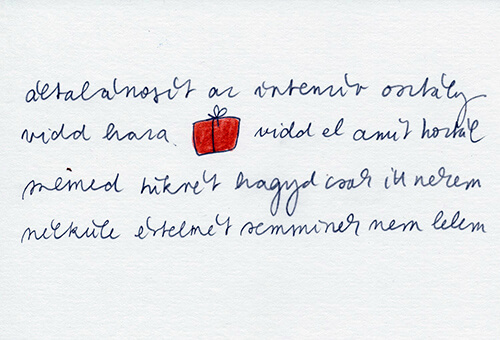 általánosít az intenzív osztály
vidd haza vidd el amit hoztál
szemed tükrét hagyd csak itt nekem
nélküle értelmét semminek nem lelem